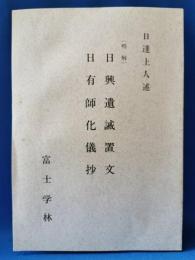 日達上人述
（略解）
日興遺誡置文
日有師化儀抄
富士学林